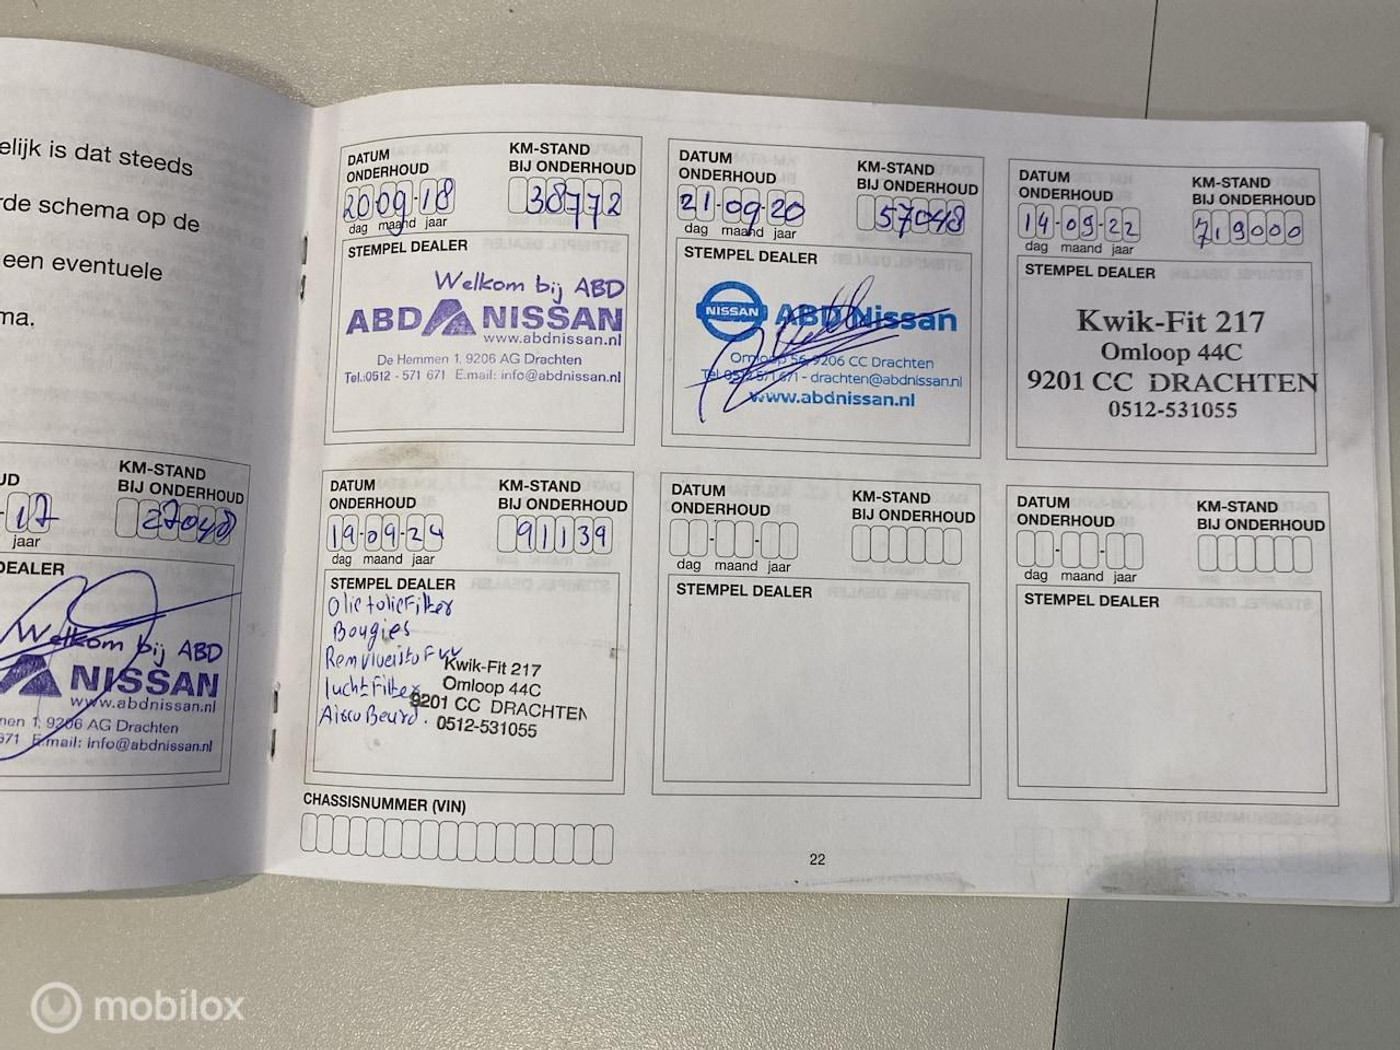 elijk is dat steeds
rde schema op de
een eventuele
ma.
UD
KM-STAND
BIJ ONDERHOUD
-17
27048
jaar
DEALER
Welkom bij ABD
NISSAN
www.abdnissan.nl
nen 1, 9206 AG Drachten
671 E.mail: info@abdnissan.nl
DATUM
ONDERHOUD
KM-STAND
BIJ ONDERHOUD
20-09-18
38772
dag maand jaar
STEMPEL DEALER
Welkom bij ABD
ABD NISSAN
www.abdnissan.nl
De Hemmen 1, 9206 AG Drachten
Tel.:0512 - 571 671 E.mail: info@abdnissan.nl
DATUM
ONDERHOUD
KM-STAND
BIJ ONDERHOUD
21-09-20
57048
dag maand jaar
STEMPEL DEALER
NISSAN ABD Nissan
Omloop 56, 9206 CC Drachten
Tel. 0512-571 671 - drachten@abdnissan.nl
www.abdnissan.nl
DATUM
ONDERHOUD
KM-STAND
BIJ ONDERHOUD
14-09-22
719000
dag maand jaar
STEMPEL DEALER
Kwik-Fit 217
Omloop 44C
9201 CC DRACHTEN
0512-531055
DATUM
ONDERHOUD
KM-STAND
BIJ ONDERHOUD
19-09-24
91139
dag maand jaar
STEMPEL DEALER
Olie+olieFilter
Bougies
luchtFilter
Airco Beurd.
Kwik-Fit 217
Omloop 44C
9201 CC DRACHTEN
0512-531055
DATUM
ONDERHOUD
KM-STAND
BIJ ONDERHOUD
dag maand jaar
STEMPEL DEALER
DATUM
ONDERHOUD
KM-STAND
BIJ ONDERHOUD
dag maand jaar
STEMPEL DEALER
CHASSISNUMMER (VIN)
22
mobilox